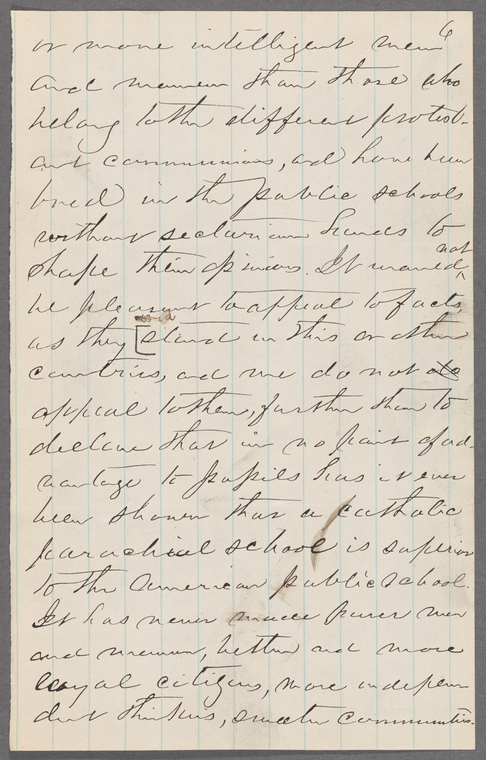 6
or more intelligent men
and women than those who
belong to the different protest-
ant communions, and have been
bred in the public schools
without sectarian hands to
shape their opinions. It would not
be pleasant to appeal to facts,
as they [stand in this or other
countries, and we do not do
appeal to them, further than to
declare that in no point of ad-
vantage to pupils has it ever
been shown that a catholic
parochial school is superior
to the American public school.
It has never made purer men
and women, better and more
loyal citizens, more indepen
dent thinkers, sweeter communities.